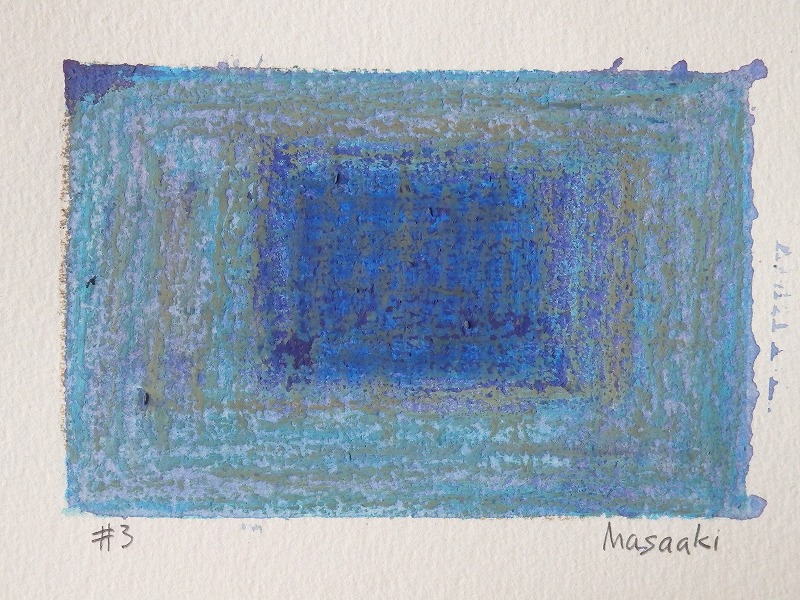 #3
Masaaki